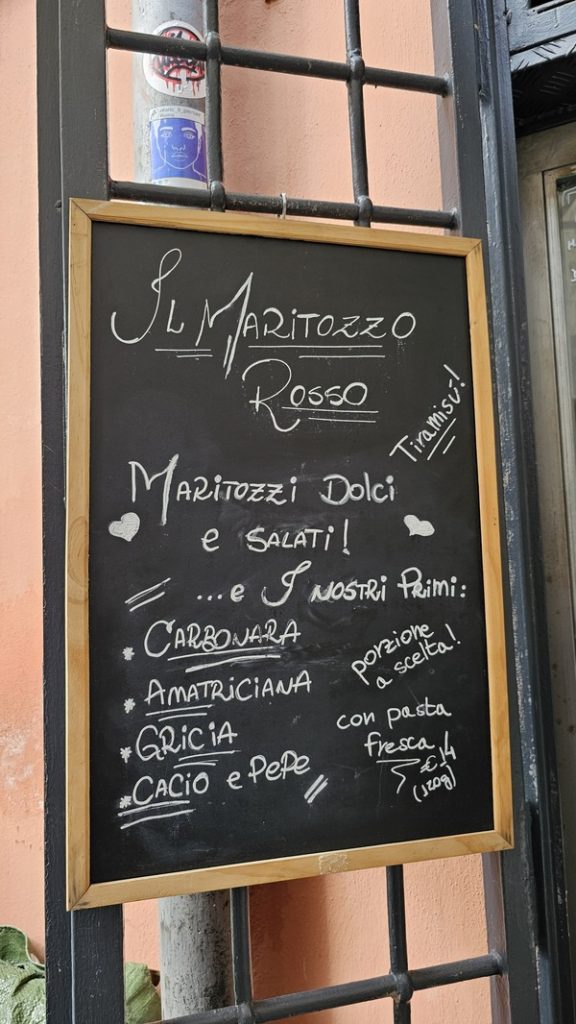 Il Maritozzo
Rosso
Tiramisù!
Maritozzi Dolci
e salati!
...e I nostri Primi:
* Carbonara
* Amatriciana
* Gricia
* Cacio e Pepe
porzione
a scelta!
con pasta
fresca
(120g)